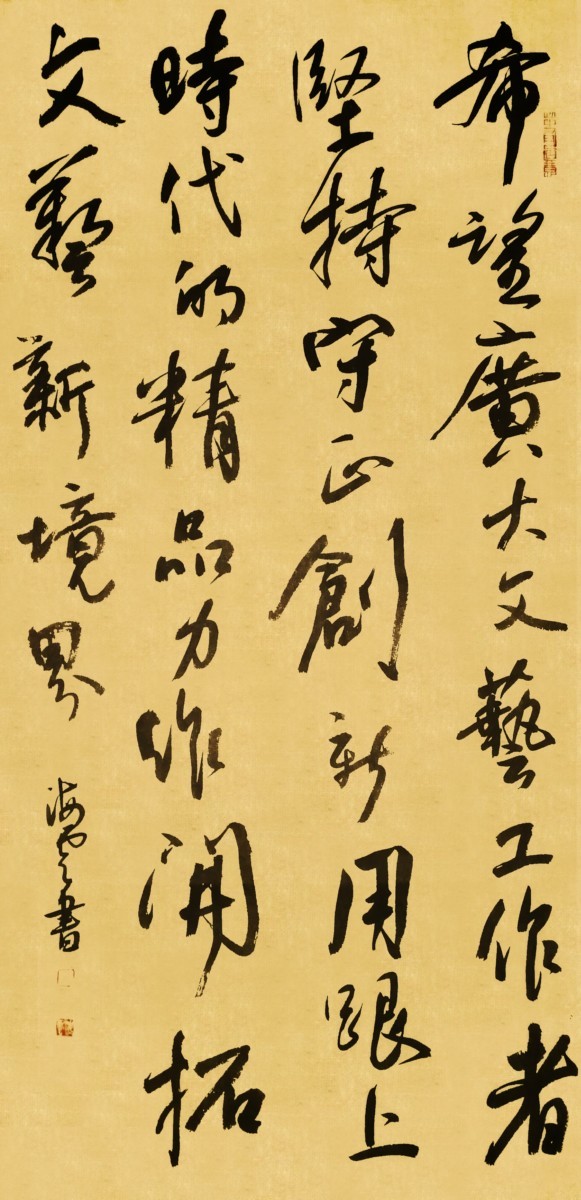 希望廣大文藝工作者
堅持守正創新用跟上
時代的精品力作開拓
文藝新境界
海雲書